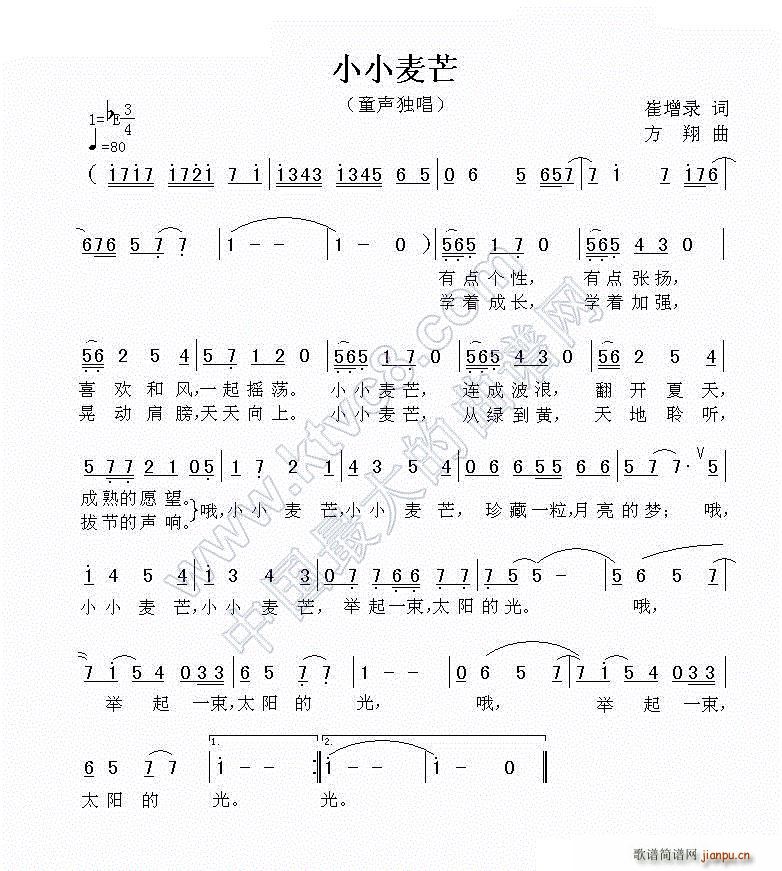 小小麦芒
（童声独唱）
1=♭E 3/4
♩=80
崔增录 词
方 翔 曲
( 1717 1721 7 1 | 1343 1343 6 5 | 0 6 5 657 | 7 1 7 176
676 5 7 7 | 1 - - | 1 - 0 ) | 565 1 7 0 | 565 4 3 0 |
有点个性， 有点张扬，
学着成长， 学着加强，
56 2 5 4 | 5 7 1 2 0 | 565 1 7 0 | 565 4 3 0 | 56 2 5 4 |
喜欢和风，一起摇荡。 小小麦芒， 连成波浪， 翻开夏天，
晃动肩膀，天天向上。 小小麦芒， 从绿到黄， 天地聆听，
5 7 7 2 1 0 5 | 1 7 2 1 | 4 3 5 4 | 0 6 6 5 5 6 6 | 5 7 7· V 5 |
成熟的愿望。
拔节的声响。
}哦，小小麦芒，小小麦芒， 珍藏一粒，月亮的梦； 哦，
1 4 5 4 | 1 3 4 3 | 0 7 7 6 6 7 6 | 7 5 5 - | 5 6 5 7
小小麦芒，小小麦芒， 举起一束，太阳的光。 哦，
7 1 5 4 0 3 3 | 6 5 7 7 | 1 - - | 0 6 5 7 | 7 1 5 4 0 3 3 |
举起一束，太阳的光， 哦， 举起一束，
1. 2.
6 5 7 7 | 1 - - :| 1 - - | 1 - 0 ‖
太阳的 光。 光。
www.ktvc8.com
中国最大的曲谱网
歌谱简谱网 jianpu.cn